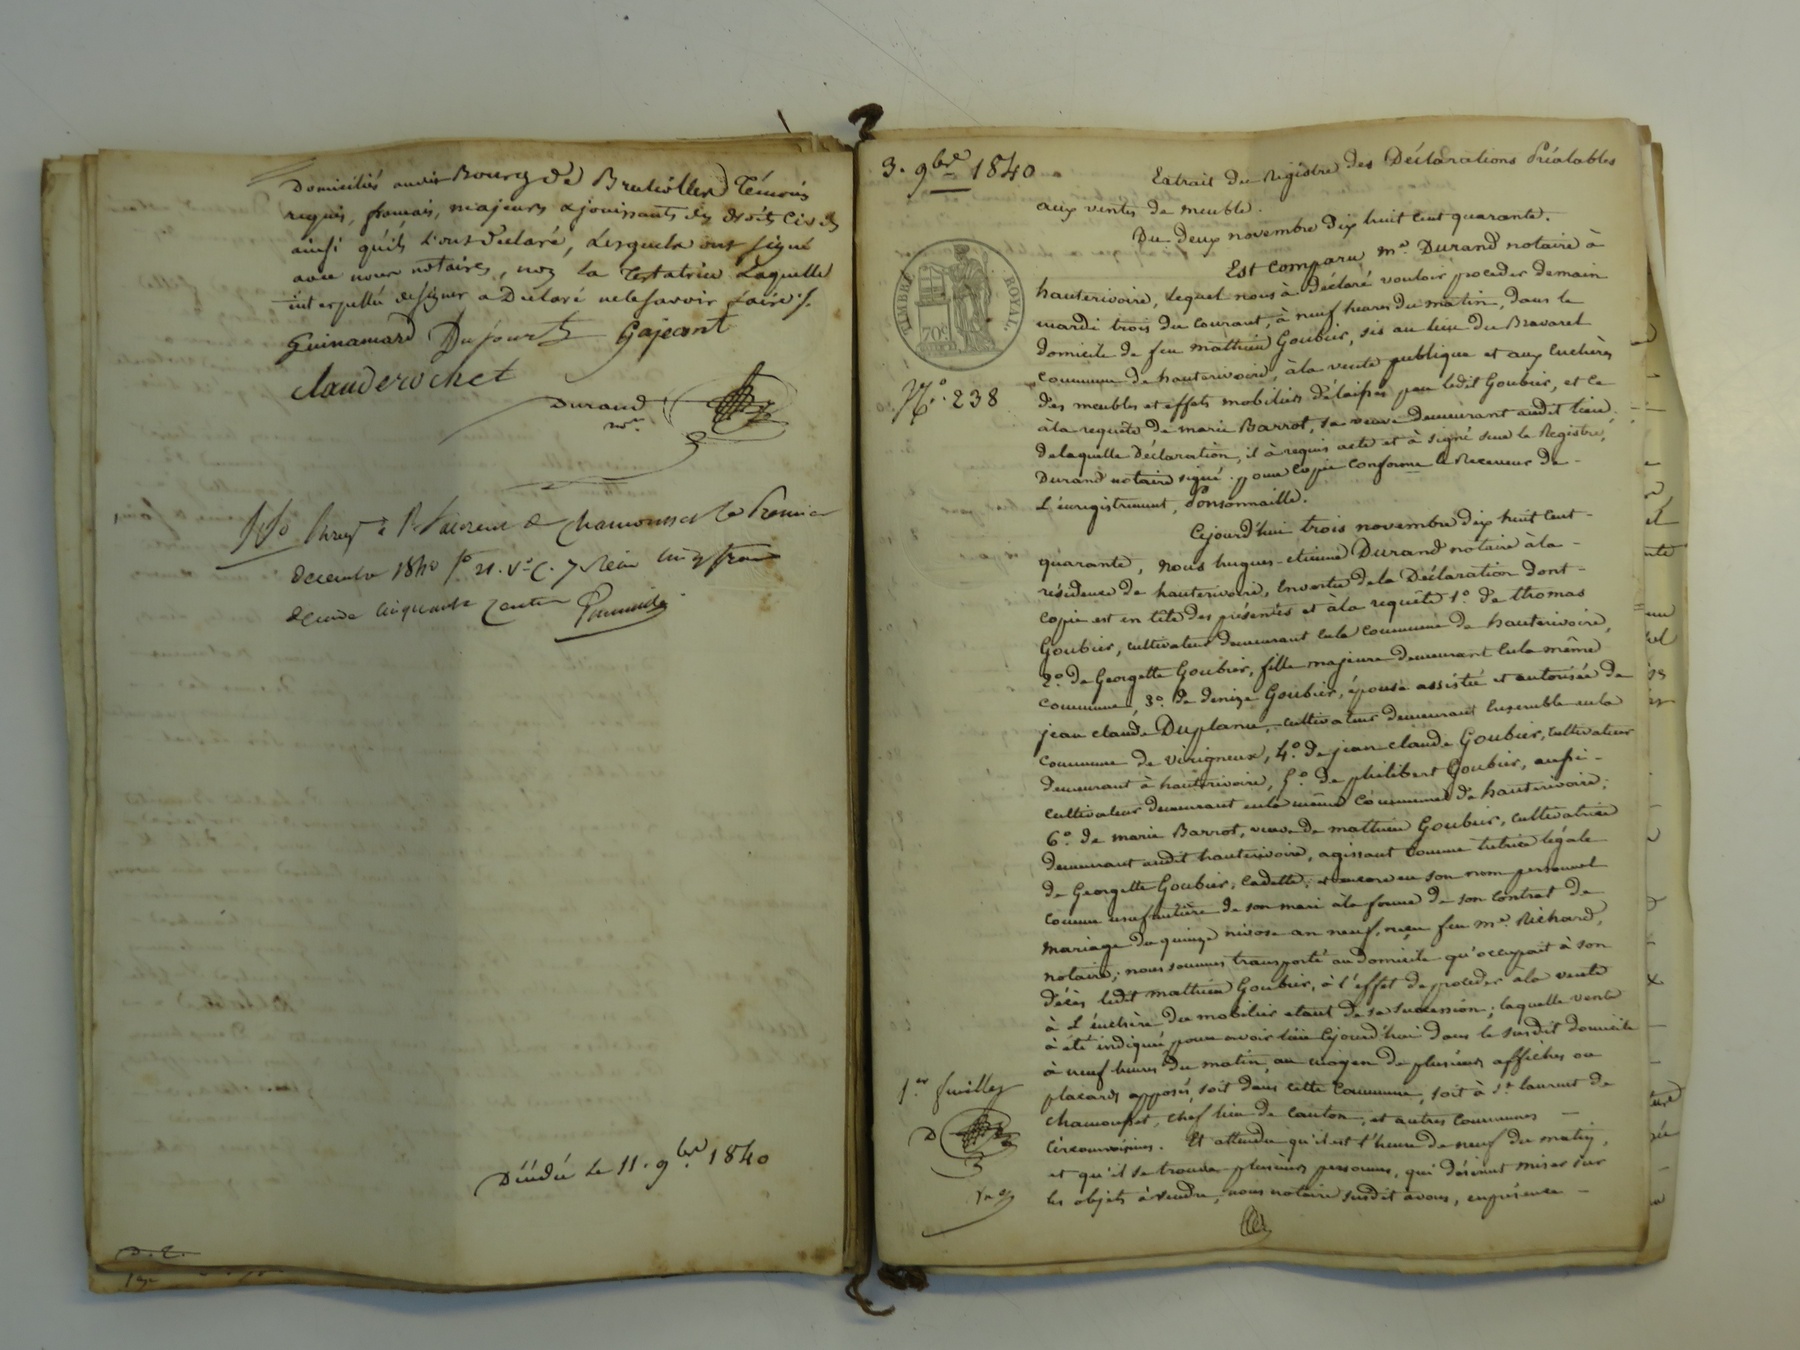 Domiciliés audit Bourg de Brulliolles témoins
requis, français, majeurs & jouissants des droits civils
ainsi qu'ils l'ont déclaré, Lesquels ont signé
avec nous notaires, non la testatrice Laquelle
interpellée de signer a Déclaré ne le savoir faire ./.
Guinamard Dufourt Gajeant
Claude rochet
Durand
nre
Enreg à St Laurent de Chamousset le Premier
decembre 1840 fo 21. vo c. 7 Reçu cinq francs
decime cinquante centes
Déédée le 11. 9bre 1840
3. 9bre 1840
TIMBRE ROYAL
70c
No. 238
Extrait du Registre des Déclarations Préalables
aux ventes de meuble.
Du deux novembre dix huit cent quarante.
Est comparu me. Durand notaire à
hauterivoire, Lequel nous à Déclaré vouloir proceder demain
mardi trois du courant, à neuf heures du matin, dans le
domicile de feu mathieu Goubier, sis au lieu du Bravaret
commune de hauterivoire, à la vente publique et aux Enchères
des meubles et effets mobiliers délaissés par ledit Goubier, et ce
à la requête de marie Barrot, sa veuve demeurant audit lieu.
de laquelle Déclaration, il à requis acte et à signé sur le Registre,
Durand notaire signé. pour Copie Conforme le Receveur de -
L'enregistrement, Ponsonnaille.
Cejourd'hui trois novembre dix huit cent -
quarante, nous hugues-etienne Durand notaire à la -
résidence de hauterivoire, En vertu de la Déclaration dont -
copie est en tête des présentes et à la requête 1o. de thomas
Goubier, cultivateur demeurant en la commune de hauterivoire,
2o. de Georgette Goubier, fille majeure demeurant en la même
commune, 3o. de denize Goubier, épouse assistée et autorisée de
jean claude Duplane, cultivateur demeurant Ensemble en la
commune de virigneux, 4o. de jean claude Goubier, cultivateur
demeurant à hauterivoire, 5o. de philibert Goubier, aussi -
cultivateur demeurant en la même Commune de hauterivoire;
6o. de marie Barrot, veuve de mathieu Goubier, cultivatrice
demeurant audit hauterivoire, agissant Comme tutrice légale
de Georgette Goubier, Cadette, et encore en son nom personnel
comme usufruitière de son mari à la forme de son contrat de
mariage du quinze nivose an neuf, reçu feu me. Richard,
notaire; nous sommes transporté au domicile qu'occupait à son
décès ledit mathieu Goubier, à l'effet de procéder à la vente
à L'enchère du mobilier étant de sa succession; laquelle vente
à été indiquée pour avoir lieu Cejourd'hui dans le susdit domicile
à neuf heures du matin, au moyen de plusieurs affiches ou
placards apposés, soit dans cette Commune, soit à St. laurent de
Chamousset, chef lieu de canton, et autres communes -
circonvoisines. Et attendu qu'il est l'heure de neuf du matin,
et qu'il se trouve plusieurs personnes, qui désirent miser sur
les objets à vendre, nous notaire susdit avons, en présence -
1er feuillet
D